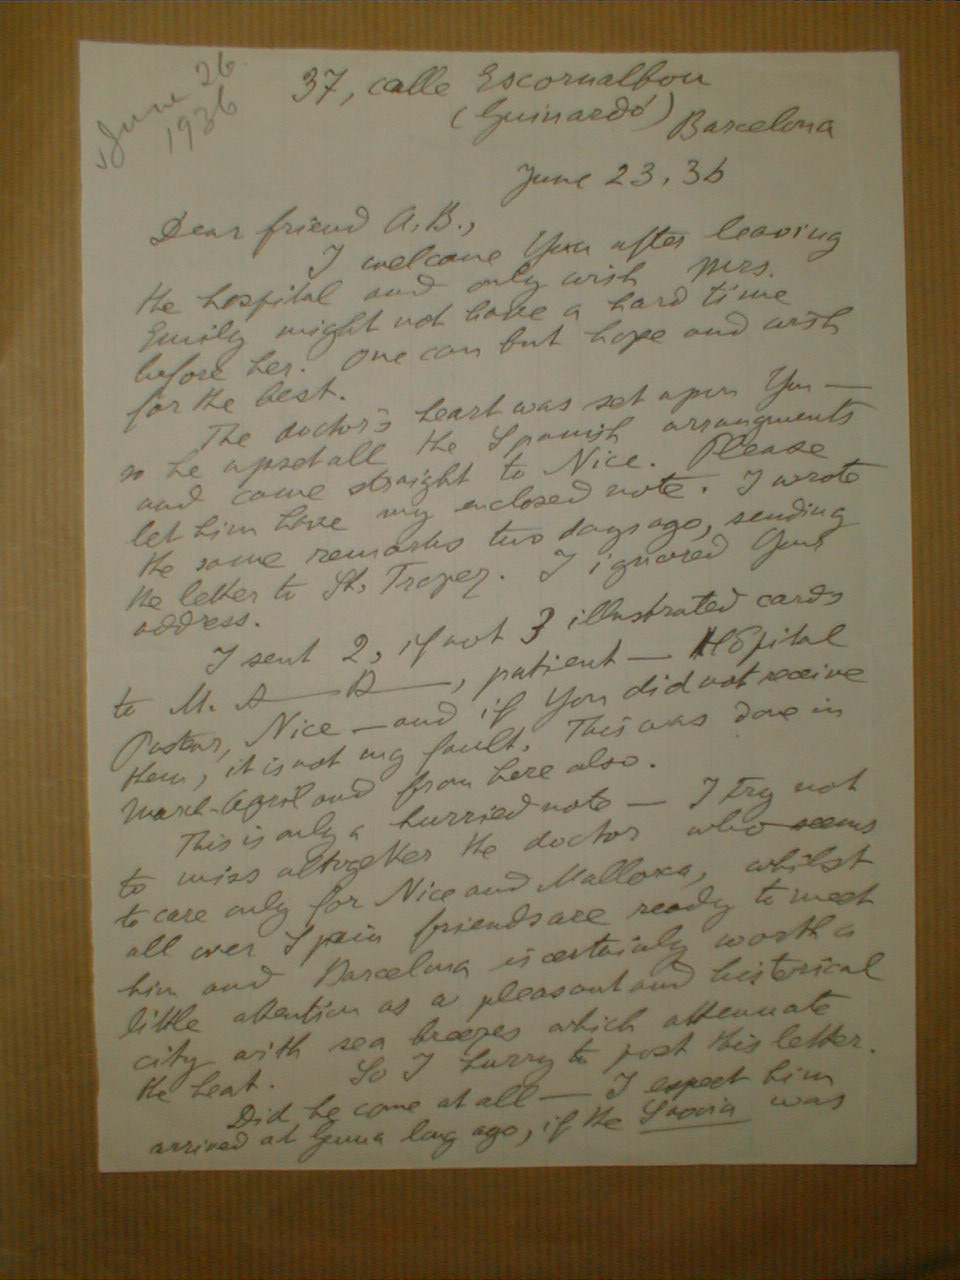 June 26
1936
37, calle Escornalbou
(Guinardó) Barcelona
June 23, 36
Dear friend A.B.,
I welcome You after leaving
the hospital and only wish Mrs.
Emily might not have a hard time
before her. One can but hope and wish
for the best.
The doctor's heart was set upon You —
so he upset all the Spanish arrangments
and came straight to Nice. Please
let him have my enclosed note. I wrote
the same remarks two days ago, sending
the letter to St. Tropez. I ignored Your
address.
I sent 2, if not 3 illustrated cards
to M. A— B—, patient — Hôpital
Pasteur, Nice — and if You did not receive
them, it is not my fault. This was done in
March-April and from here also.
This is only a hurried note — I try not
to miss altogether the doctor who seems
to care only for Nice and Mallorca, whilst
all over Spain friends are ready to meet
him and Barcelona is certainly worth a
little attention as a pleasant and historical
city with sea breezes which attenuate
the heat. So I hurry to post this letter.
Did he come at all — I expect him
arrived at Genua long ago, if the Savoia was